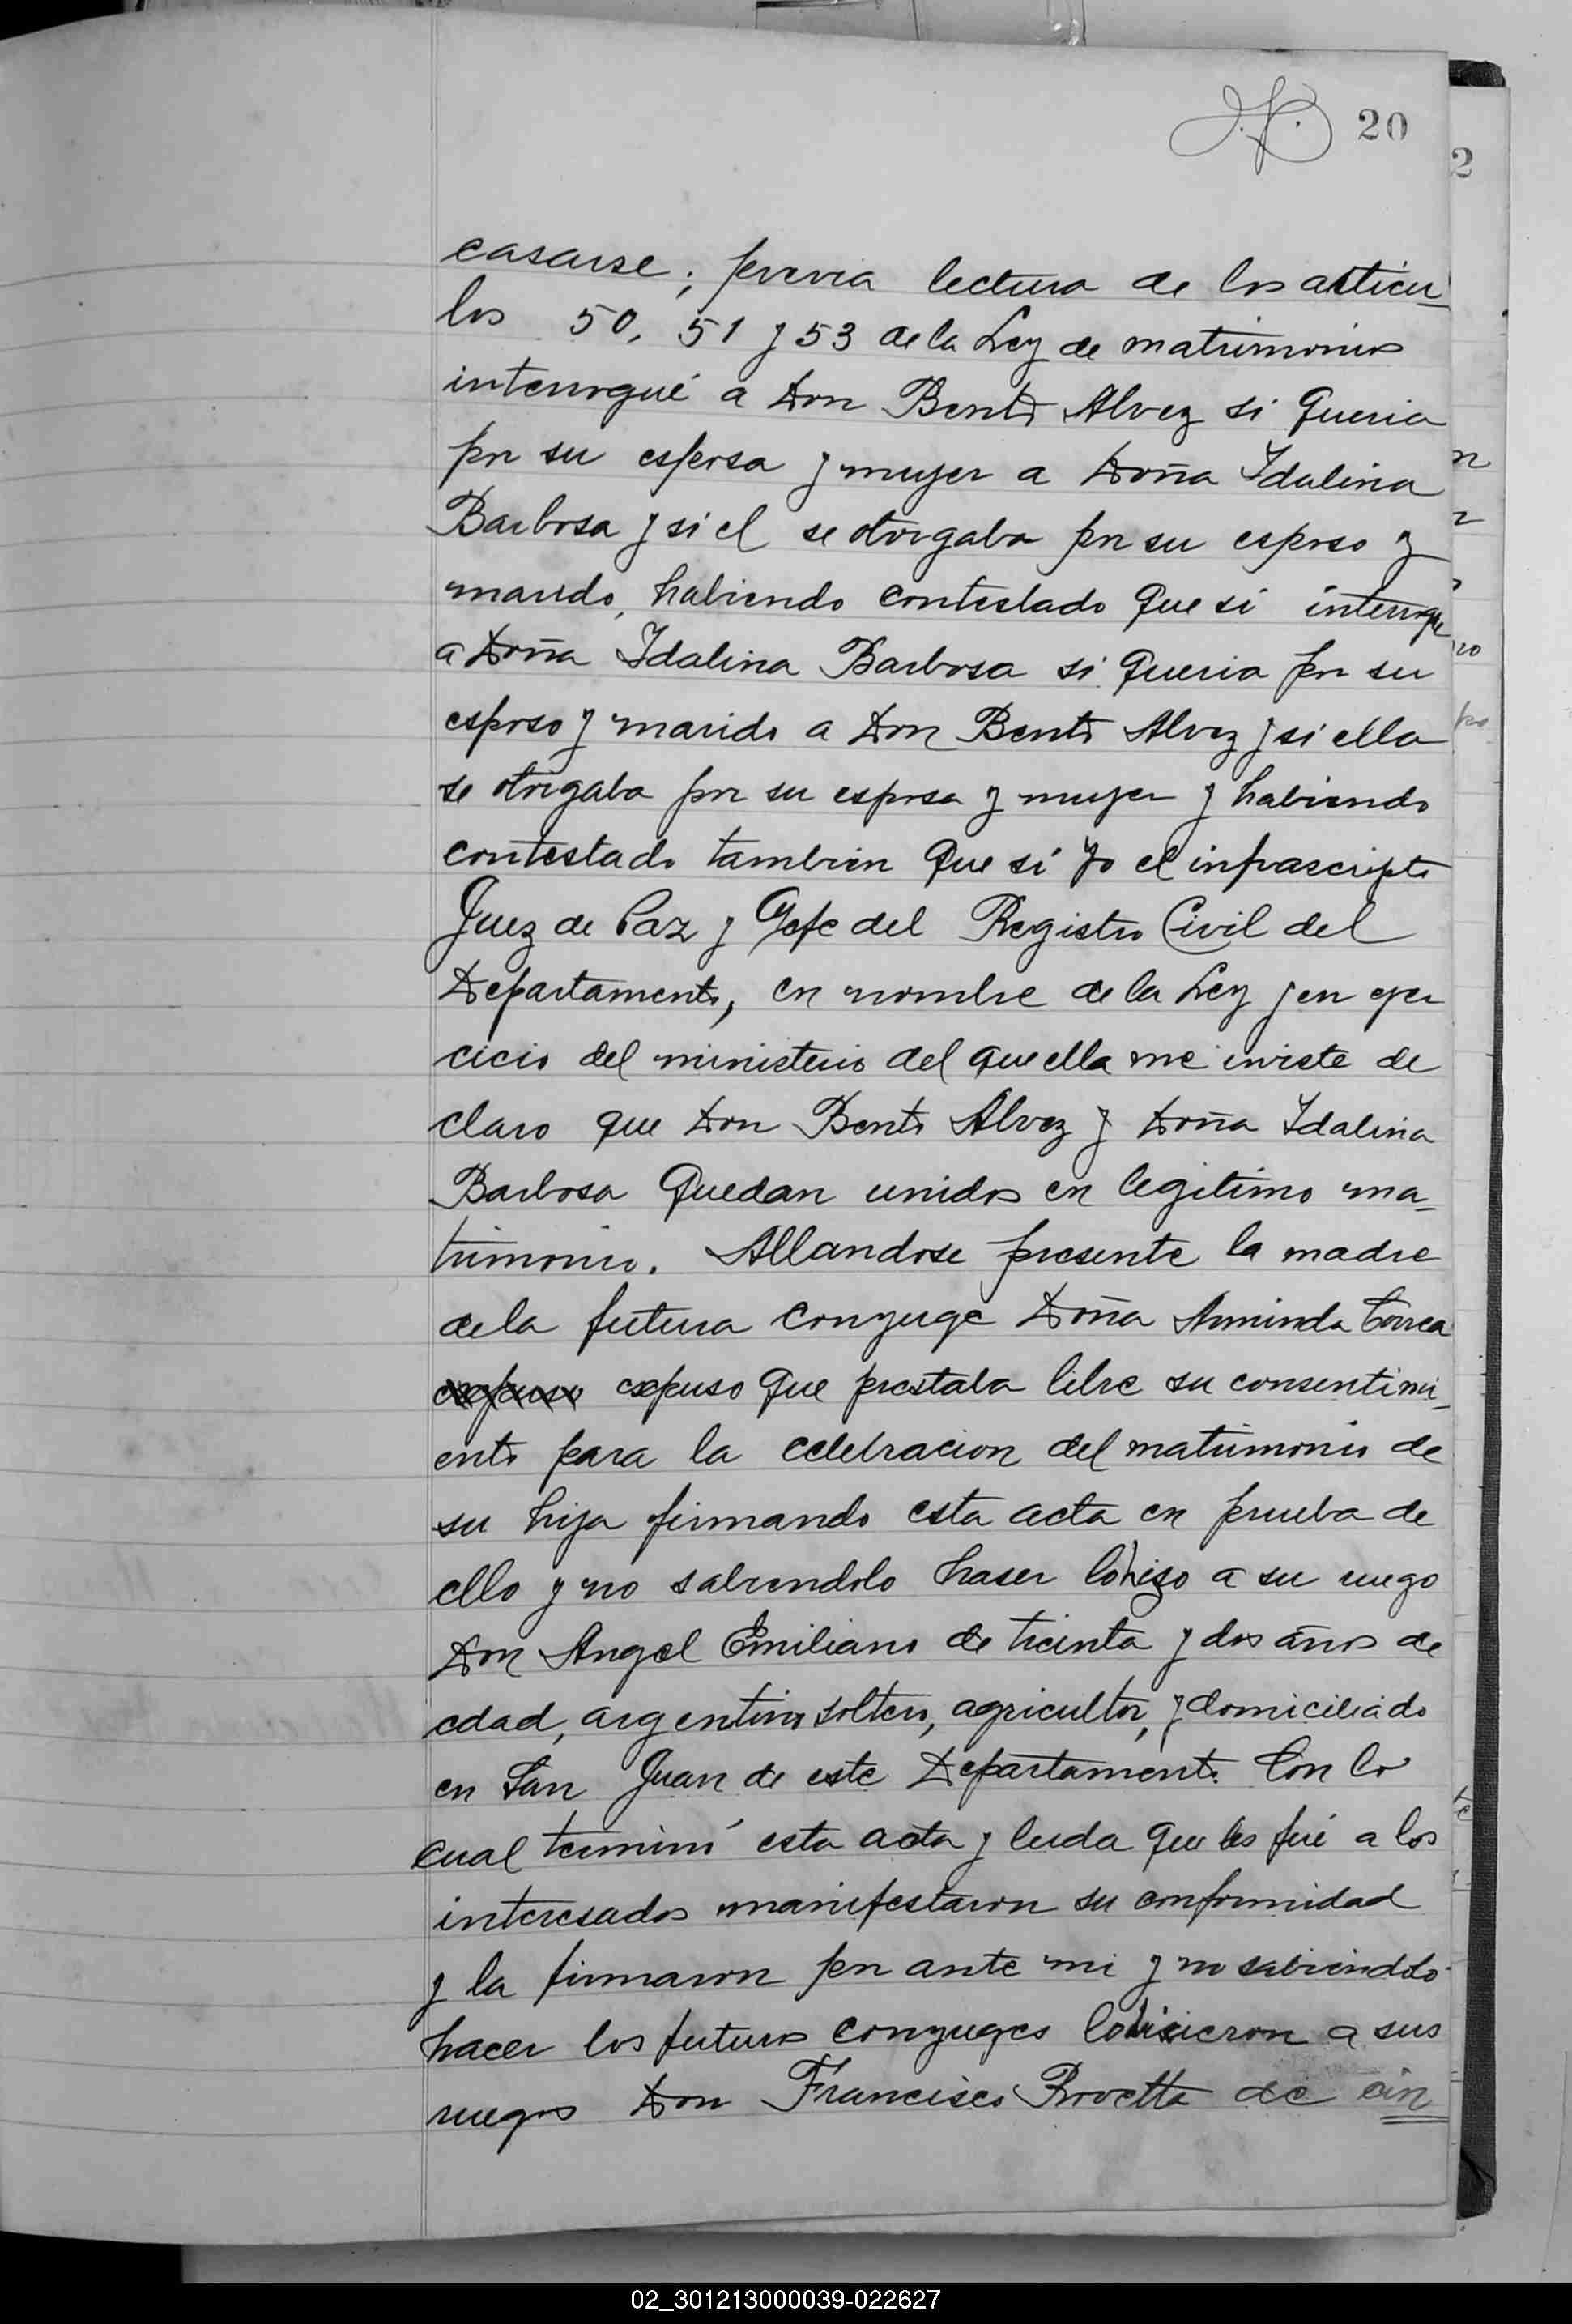 20
2
casarse; previa lectura de los articu
los 50, 51 y 53 de la Ley de matrimonios
interrogué a Don Bento Alvez si queria
por su esposa y mujer a Doña Idalina
Barbosa y si el se otorgaba por su esposo y
marido, habiendo contestado que si interrogue
a Doña Idalina Barbosa si queria por su
esposo y marido a Don Bento Alvez y si ella
se otorgaba por su esposa y mujer y habiendo
contestado tambien que si yo el infrascripto
Juez de Paz y Gefe del Registro Civil del
Departamento, en nombre de la Ley y en ejer
cicio del ministerio del que ella me inviste de
claro que Don Bento Alvez y Doña Idalina
Barbosa quedan unidos en legitimo ma-
trimonio. Allandose presente la madre
de la futura conyuge Doña Arminda Correa
expuso que prestaba libre su consentimi-
ento para la celebracion del matrimonio de
su hija firmando esta acta en prueba de
ello y no sabiendolo haser lo hizo a su ruego
Don Angel Emiliano de treinta y dos años de
edad, argentino soltero, agricultor, y domiciliado
en San Juan de este Departamento. Con lo
cual terminó esta acta y leida que les fué a los
interesados manifestaron su conformidad
y la firmaron por ante mi y no sabiendolo
hacer los futuros conyuges lo hicieron a sus
ruegos Don Francisco Rovetta de cin
02_301213000039-022627